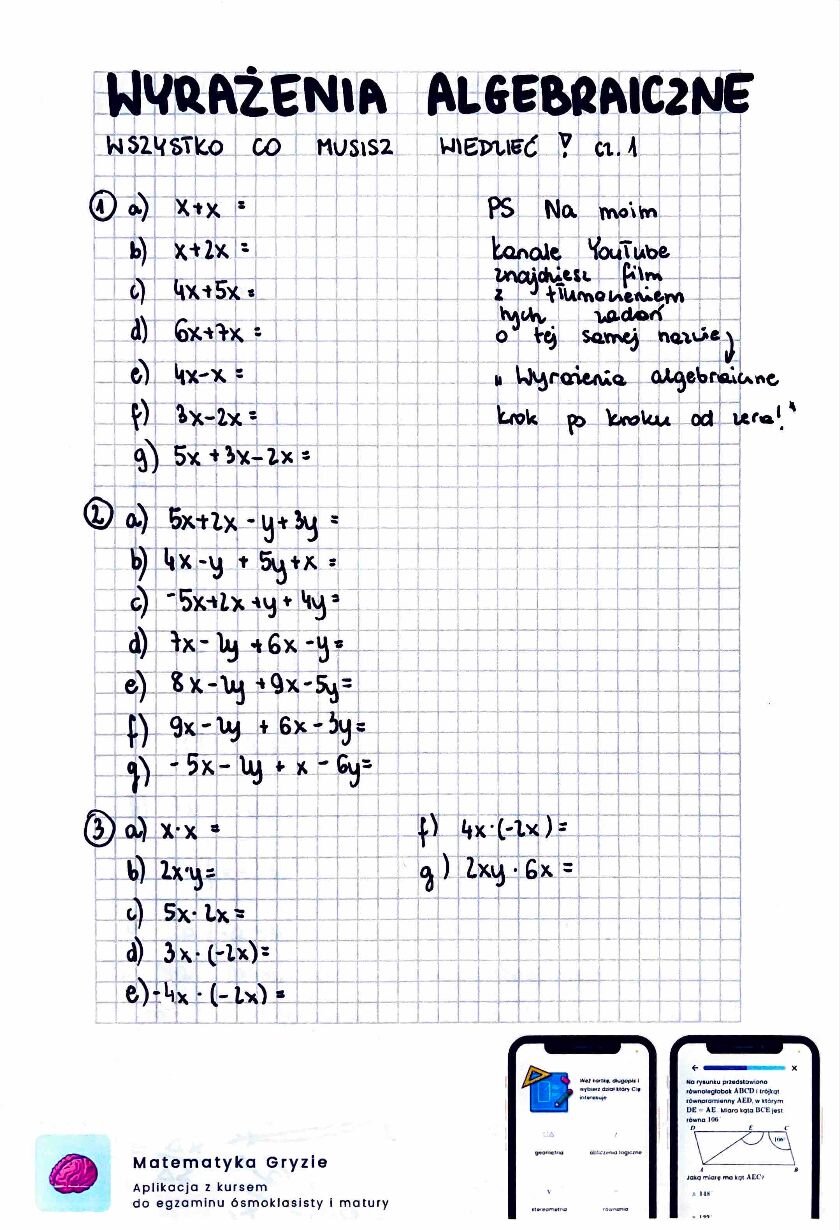 WYRAŻENIA ALGEBRAICZNE
WSZYSTKO CO MUSISZ WIEDZIEĆ! cz. 1
① a) x+x =
b) x+2x =
c) 4x+5x =
d) 6x+7x =
e) 4x-x =
f) 3x-2x =
g) 5x+3x-2x =
PS Na moim
kanale YouTube
znajdziesz film
z tłumaczeniem
tych zadań
o tej samej nazwie
"Wyrażenia algebraiczne
krok po kroku od zera!"
② a) 5x+2x-y+3y =
b) 4x-y+5y+x =
c) -5x+2x+y+4y=
d) 7x-2y+6x-y=
e) 8x-2y+9x-5y=
f) 9x-2y+6x-3y=
g) -5x-2y+x-6y=
③ a) x·x =
b) 2x·y=
c) 5x·2x=
d) 3x·(-2x)=
e) -4x·(-2x) =
f) 4x·(-2x)=
g) 2xy·6x =
Matematyka Gryzie
Aplikacja z kursem
do egzaminu ósmoklasisty i matury
Weź kartkę, długopis i
wybierz dział który Cię
interesuje
geometria
obliczenia logiczne
stereometria
równania
Na rysunku przedstawiono
równoległobok ABCD i trójkąt
równoramienny AED, w którym
DE = AE. Miara kąta BCE jest
równa 106
D E C
106
A B
Jaką miarę ma kąt AEC?
148